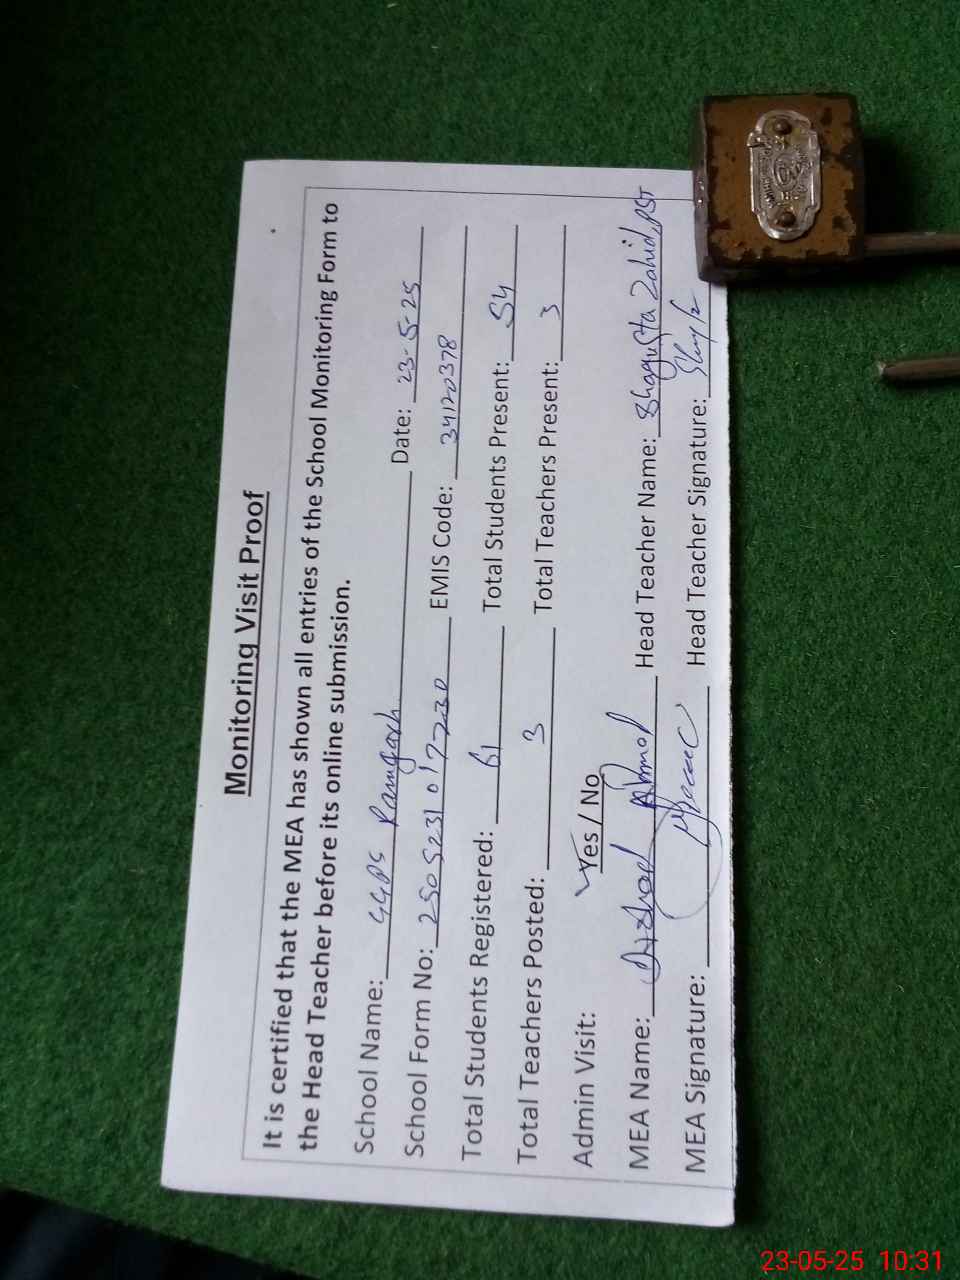 Monitoring Visit Proof
It is certified that the MEA has shown all entries of the School Monitoring Form to
the Head Teacher before its online submission.
School Name: GGPS Ramgarh Date: 23-5-25
School Form No: 2505231017730 EMIS Code: 34120378
Total Students Registered: 61 Total Students Present: 54
Total Teachers Posted: 3 Total Teachers Present: 3
Admin Visit: ✓Yes / No
MEA Name: Ahmad Head Teacher Name: Shagusta Zahid, PST
MEA Signature: Head Teacher Signature:
23-05-25 10:31